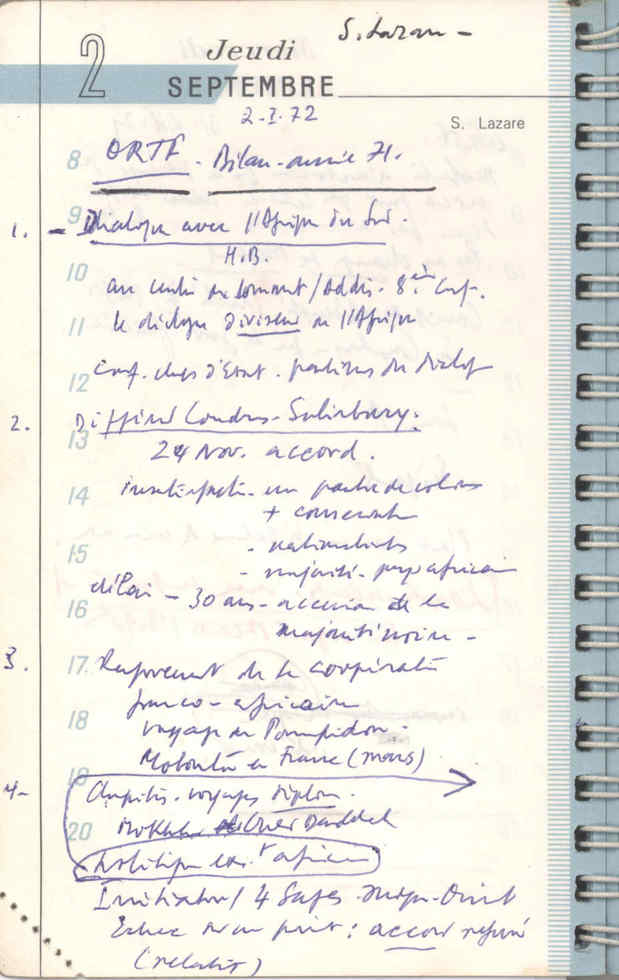 S. Lazare -
2 Jeudi
SEPTEMBRE
2-I-72
S. Lazare
8 ORTF - Bilan - année 71.
1. - 9 Dialogue avec l'Afrique du Sud.
H.B.
10 au centre du sommet / Addis - 8e Conf.
11 le dialogue diviseur de l'Afrique
12 Conf. chefs d'Etat - partisans du dialogue
2. Différend Londres-Salisbury:
13
24 Nov. accord.
14 insatisfaction - un partie de colons
+ conservat
15 - nationalistes
- majorité - pop africaine
délai - 30 ans - accession de la
16
majorité noire -
3. 17 Renforcement de la coopération
franco-africaine
18 voyage de Pompidou -
Mobutu en France (mars)
19
4- Chapitre - voyages diplom.
20 Mokhtar Ould Daddah
politique ext africaine
Initiative / 4 Sages - Moyen-Orient
Echec sur un point : accord refusé
(relatif)